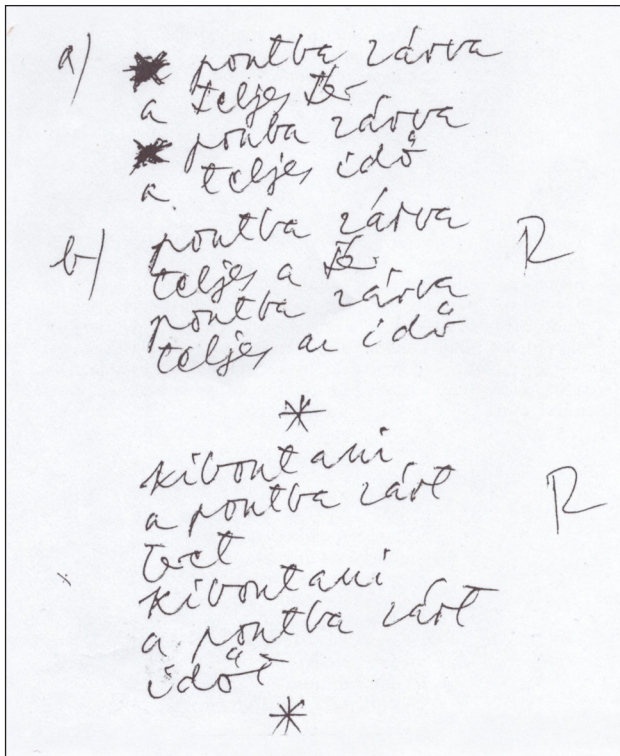 a) pontba zárva
a teljes tér
ponba zárva
a teljes idő
b) pontba zárva R
teljes a tér
pontba zárva
teljes az idő
*
kibontani
a pontba zárt R
teret
kibontani
a pontba zárt
időt
*